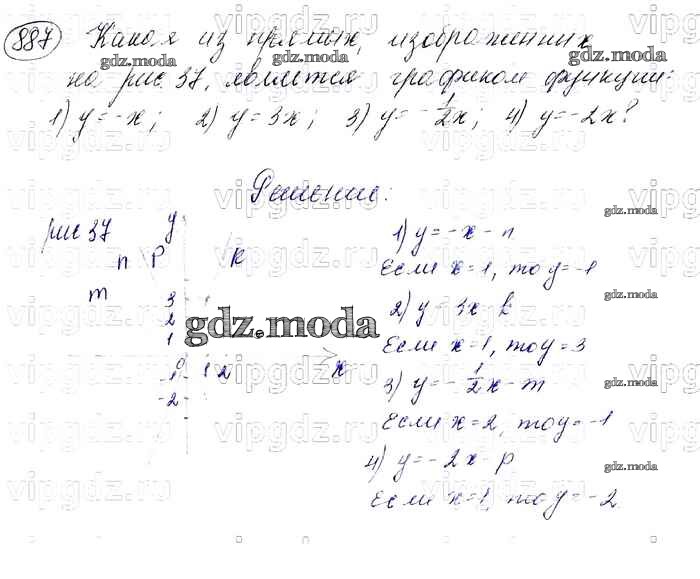 887 Какая из прямых, изображенных
на рис. 37, является графиком функции:
1) y = -x; 2) y = 3x; 3) y = -1/2x; 4) y = -2x?
Решение:
рис 37 y
n p k
m
3
2
1
0 1 2 x
-1
-2
1) y = -x - n
Если x = 1, то y = -1
2) y = 3x - k
Если x = 1, то y = 3
3) y = -1/2x - m
Если x = 2, то y = -1
4) y = -2x - p
Если x = 1, то y = -2
gdz.moda
vipgdz.ru